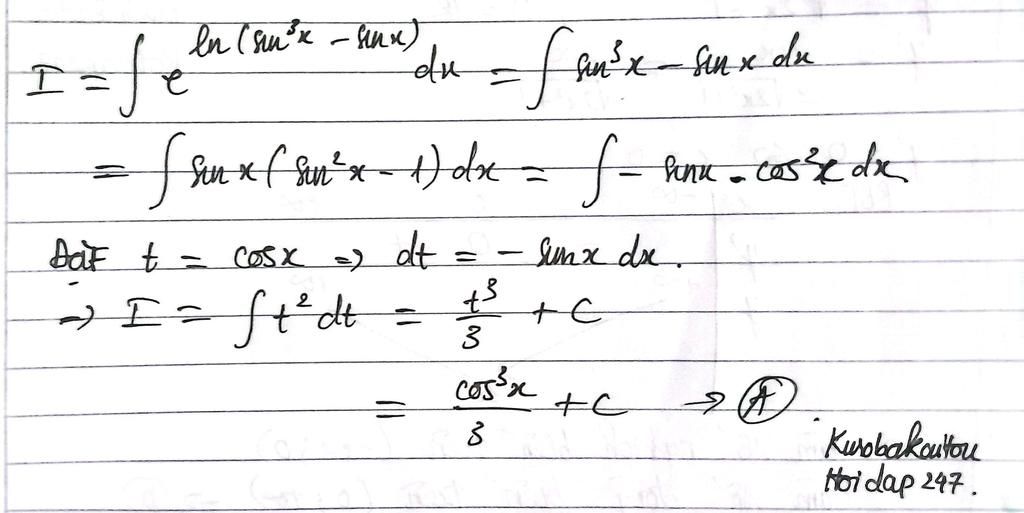 I = ∫ e^{ln(sin³x - sinx)} dx = ∫ sin³x - sin x dx
= ∫ sin x (sin²x - 1) dx = ∫ - sinx . cos²x dx
Đặt t = cosx => dt = - sinx dx.
=> I = ∫ t² dt = t³/3 + C
= cos³x/3 + C → Ⓐ.
Kurobakaitou
Hoidap 247.